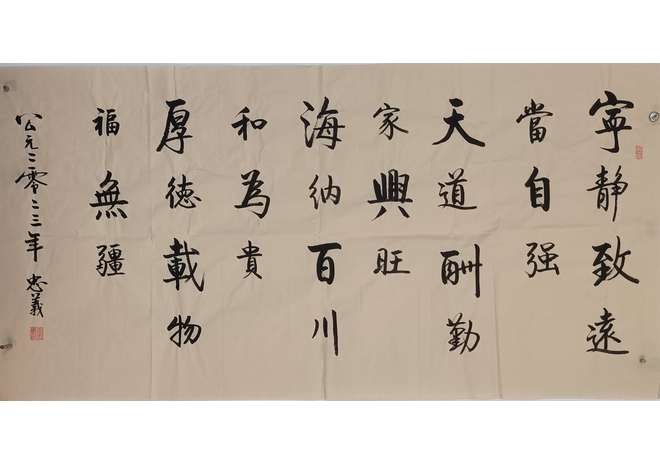 寧静致遠
當自强
天道酬勤
家興旺
海納百川
和為貴
厚德載物
福無疆
公元二零二三年 忠義